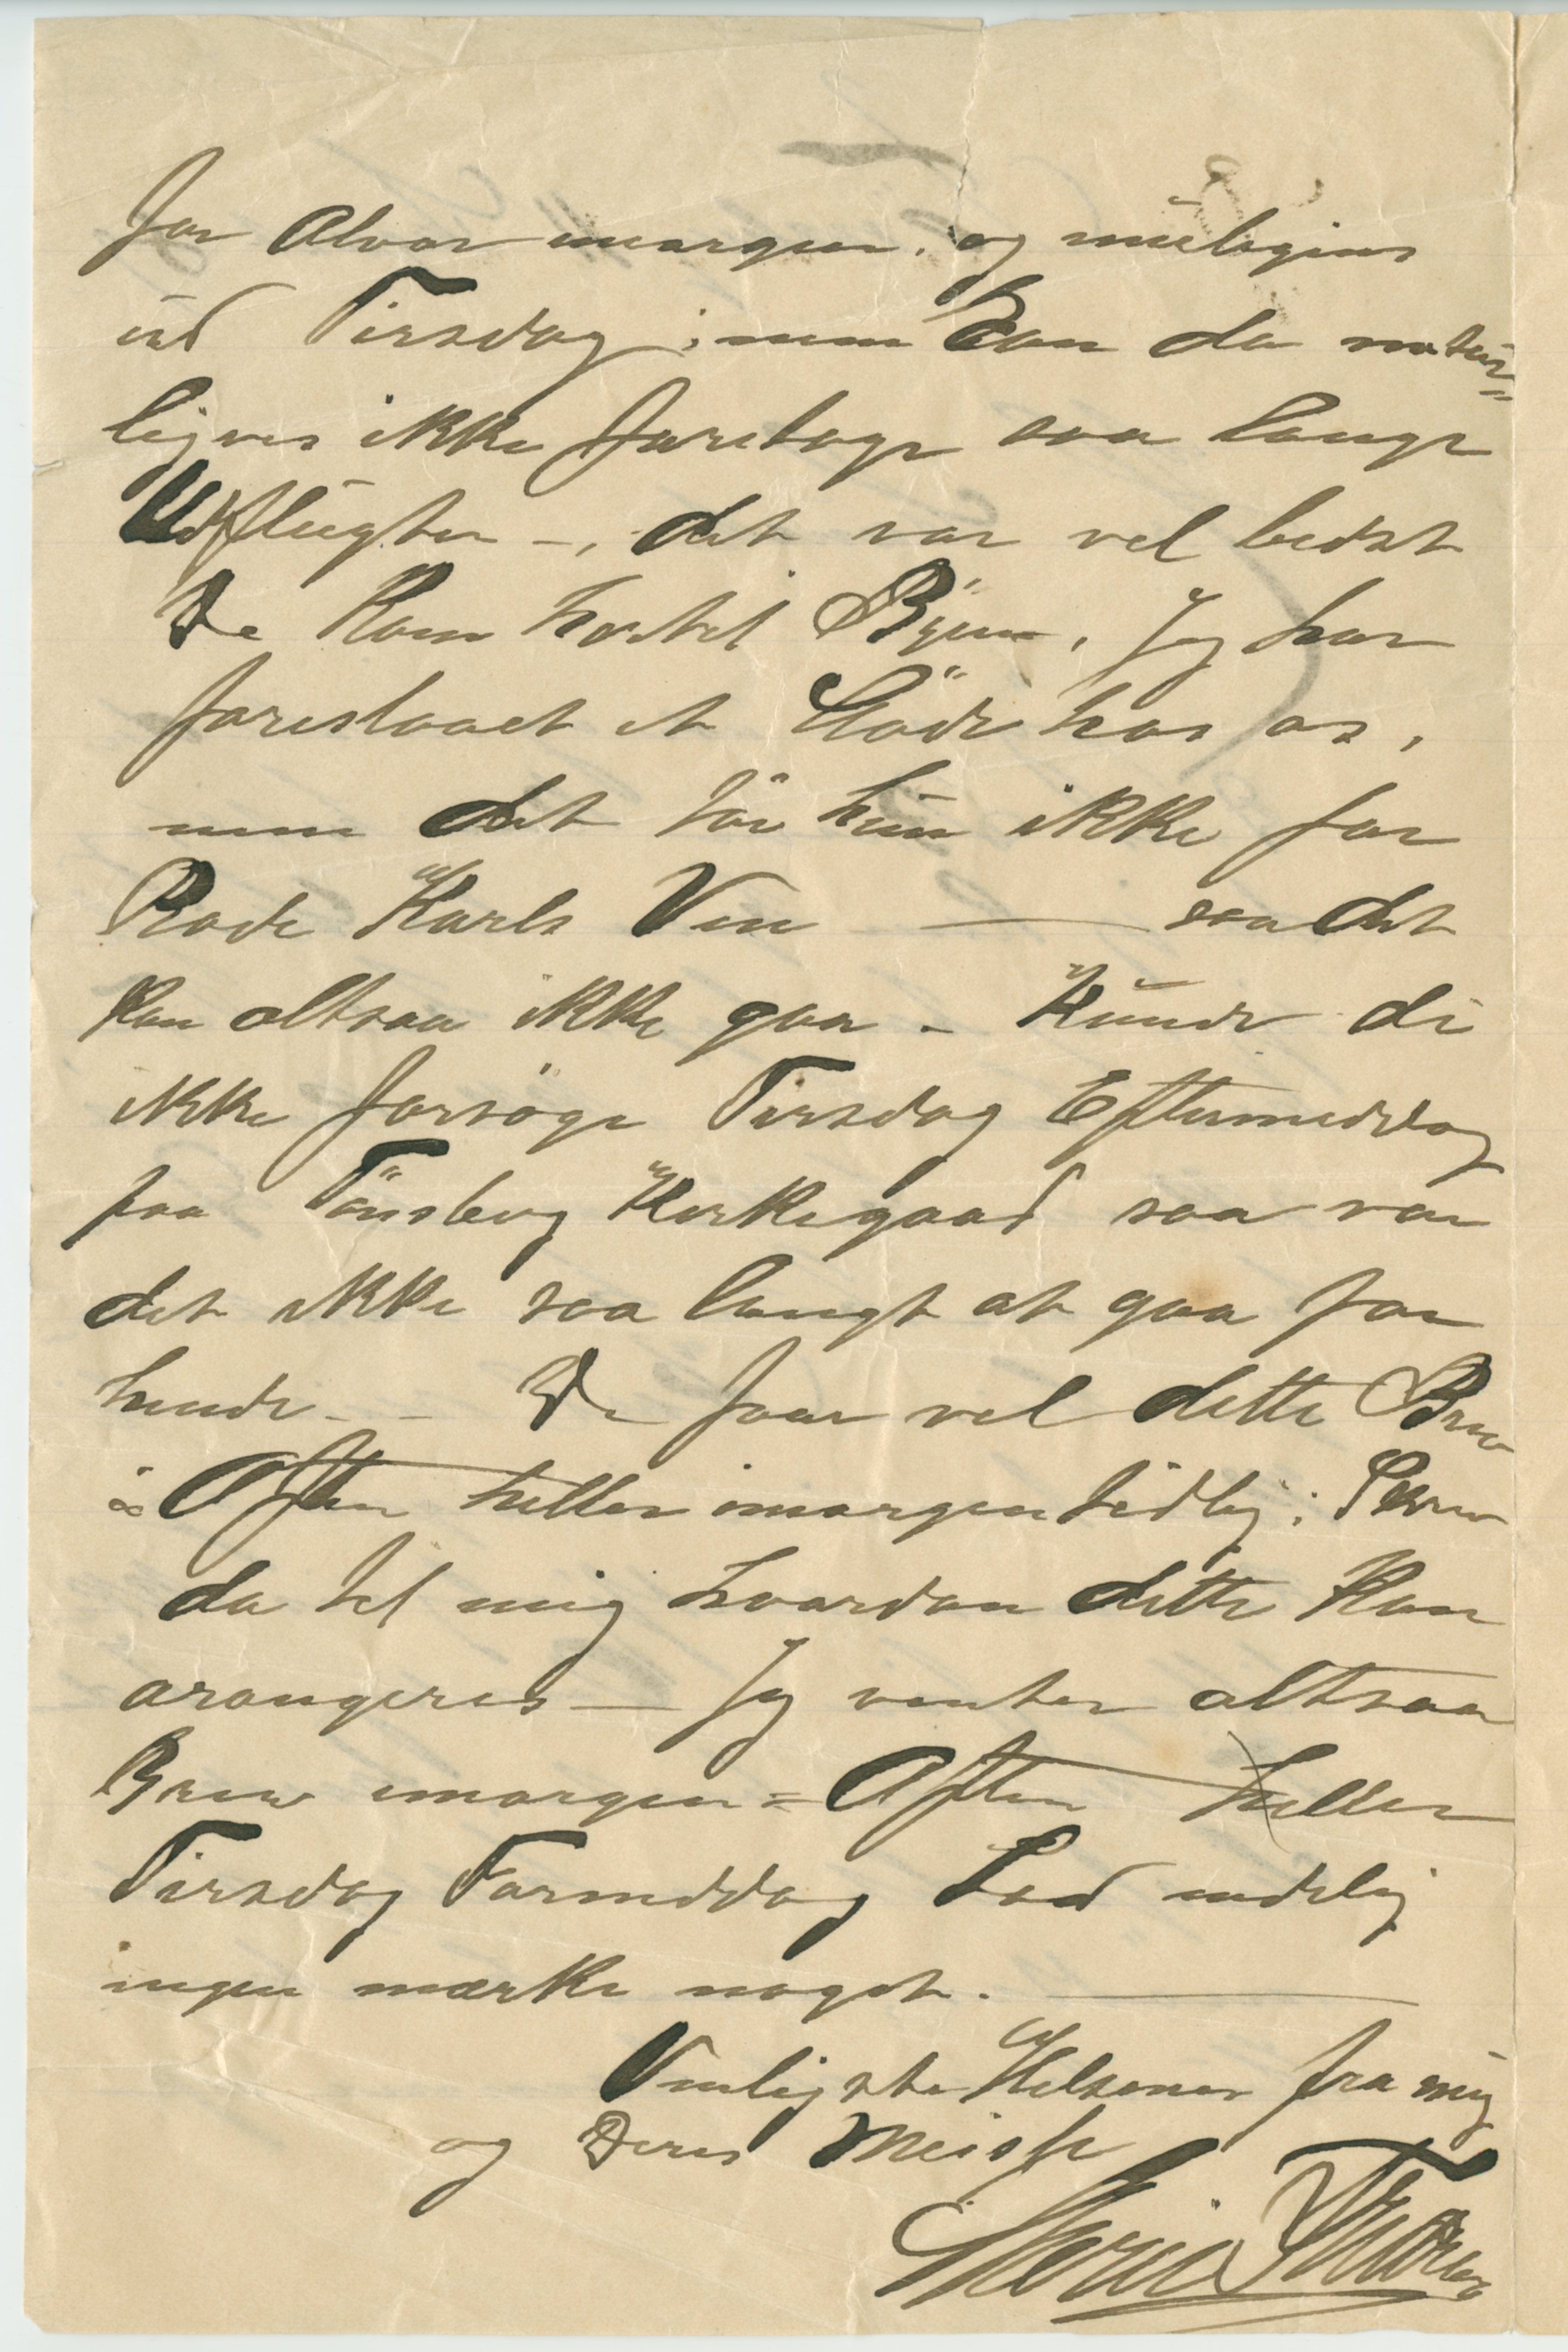 for Alvor imorgen, og muligens
ud Tirsdag; men kan da natur=
ligvis ikke foretage saa lange
Udflugter –, det var vel bedst
De kom hertil Byen, Jeg har
foreslaaet et Möde hos os,
men det tör hun ikke for
Røde Karls Ven — saa det
kan altsaa ikke gaa – Kunde di
ikke forsöge Tirsdag Eftermeddag
paa Tönsberg Kirkegaard saa var
det ikke saa langt at gaa for
hende – – De faar vel dette Brev
i Aften heller imorgen tidlig; Skriv
da til mig hvordan dette kan
arangeres — Jeg venter altsaa
Brev imorgen = Aften heller
Tirsdag Formiddag Lad endelig
ingen mærke noget. —
Venligste Hilsener fra mig
og Deres